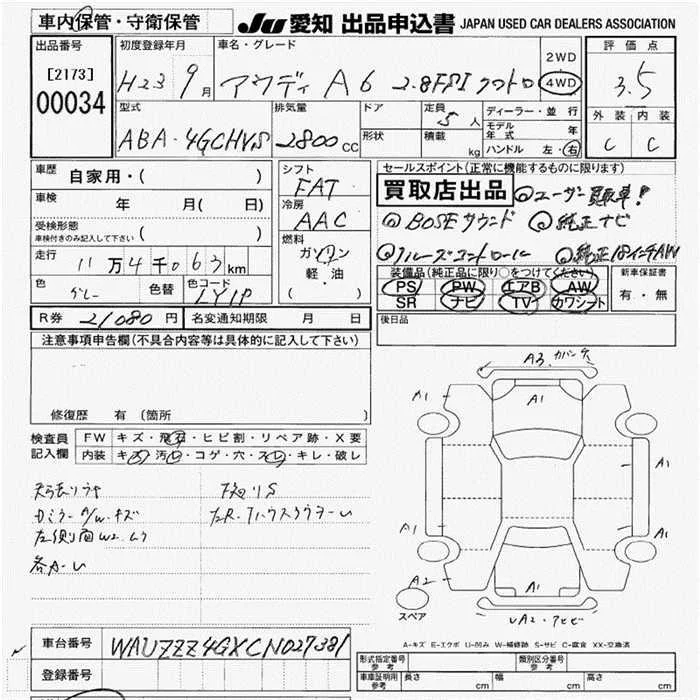 車内保管・守衛保管
JU 愛知 出品申込書 JAPAN USED CAR DEALERS ASSOCIATION
出品番号 初度登録年月 車名・グレード 評価点
[2173] 00034
H23 9月 アウディ A6 2.8FSI クワトロ 2WD 4WD 3.5
型式 排気量 ドア 定員 5人 ディーラー・並行 外装 内装
ABA-4GCHVS 2800cc 形状 積載 kg モデル年式 年 ハンドル 左・右 C C
車歴 自家用・( ) シフト FAT セールスポイント(正常に機能するものに限ります)
車検 年 月( 日) 冷房 AAC 買取店出品 ◎ユーザー買取車!
受検形態 車検付きのみ記入して下さい ( ) 燃料 ガソリン 軽・油 ( ) ◎BOSEサウンド ◎純正ナビ
走行 11万4千063km ◎クルーズコントロール ◎純正18インチAW
色 グレー 色替 色コード LY1P
装備品(純正品に限り○をつけてください) 新車保証書
PS PW エアB AW 有・無
SR ナビ TV カワシート
R券 21080円 名変通知期限 月 日 後日品
注意事項申告欄(不具合内容等は具体的に記入して下さい)
修復歴 有(箇所 )
検査員記入欄 FW キズ・飛石・ヒビ割・リペア跡・X要
内装 キズ・汚レ・コゲ・穴・スレ・キレ・破レ
A3 ガバンキズ
A1 A1
A1 A1
A1 A1
A2 A1
スペア
A-キズ E-エクボ U-凹み W-補修跡 S-サビ C-腐食 XX-交換済
下廻りS
各A-U
車台番号 WAUZZZ4GXCN027381
登録番号
形式指定番号 参考 類別区分番号 参考
車車証明用 参考 長さ cm 幅 cm 高さ cm